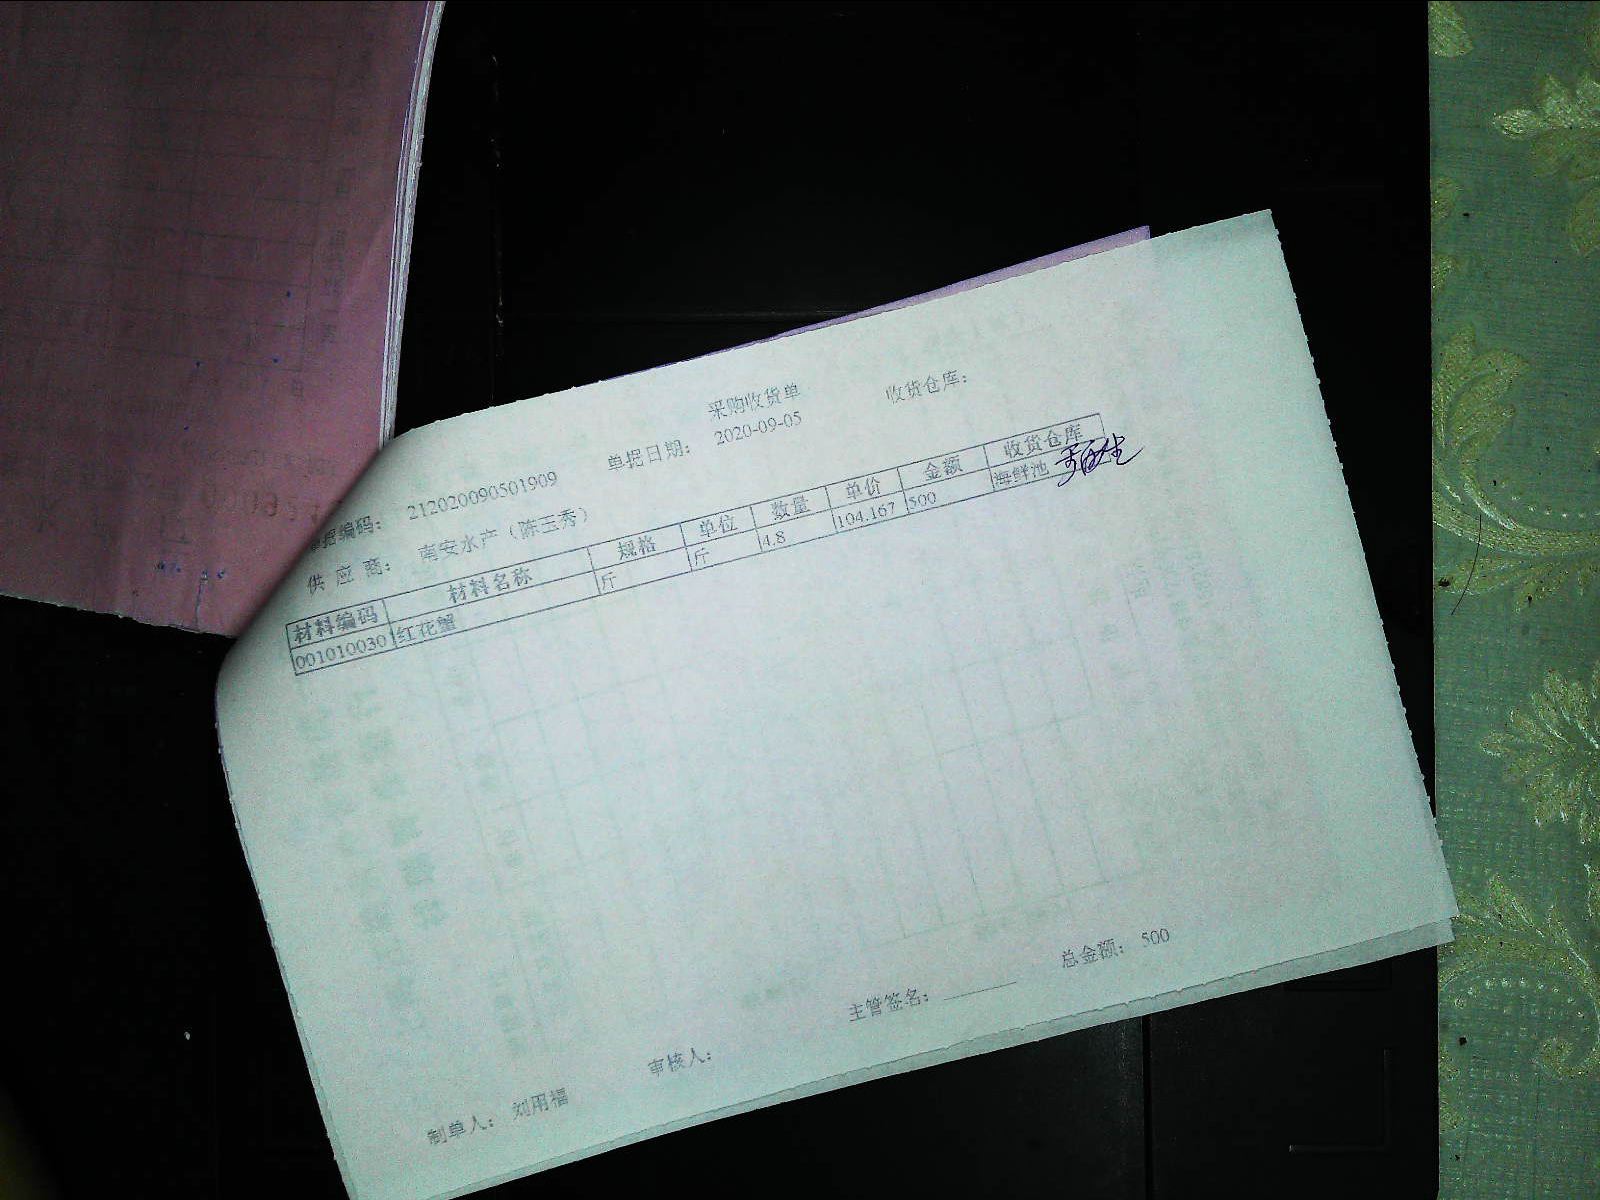 采购收货单
收货仓库：
单据编码： 212020090501909 单据日期： 2020-09-05
供 应 商： 南安水产（陈玉秀）
材料编码 材料名称 规格 单位 数量 单价 金额 收货仓库
001010030 红花蟹 斤 斤 4.8 104.167 500 海鲜池
总金额： 500
制单人： 刘用福 审核人： 主管签名：